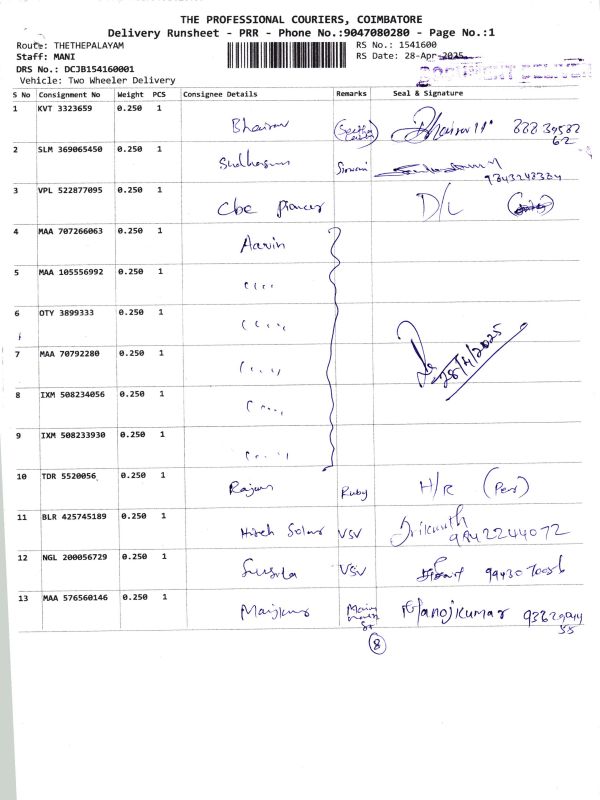 THE PROFESSIONAL COURIERS, COIMBATORE
Delivery Runsheet - PRR - Phone No.:9047080280 - Page No.:1
Route: THETHEPALAYAM
RS No.: 1541600
Staff: MANI
RS Date: 28-Apr-2025
DRS No.: DCJB154160001
Vehicle: Two Wheeler Delivery
S No Consignment No Weight PCS Consignee Details Remarks Seal & Signature
1 KVT 3323659 0.250 1 Bhairav
2 SLM 369065450 0.250 1 9843248384
3 VPL 522877095 0.250 1 Cbe Pioneer D/L
4 MAA 707266063 0.250 1 Aarvin
5 MAA 105556992 0.250 1 ''''
6 OTY 3899333 0.250 1 ''''
7 MAA 70792280 0.250 1 ''''
28/4/2025
8 IXM 508234056 0.250 1 ''''
9 IXM 508233930 0.250 1 ''''
10 TDR 5520056 0.250 1 Rajan Ruby H/R (Per)
11 BLR 425745189 0.250 1 Hitech Solar VSV Srikanth
9842244072
12 NGL 200056729 0.250 1 VSV
13 MAA 576560146 0.250 1 Manojkumar
8